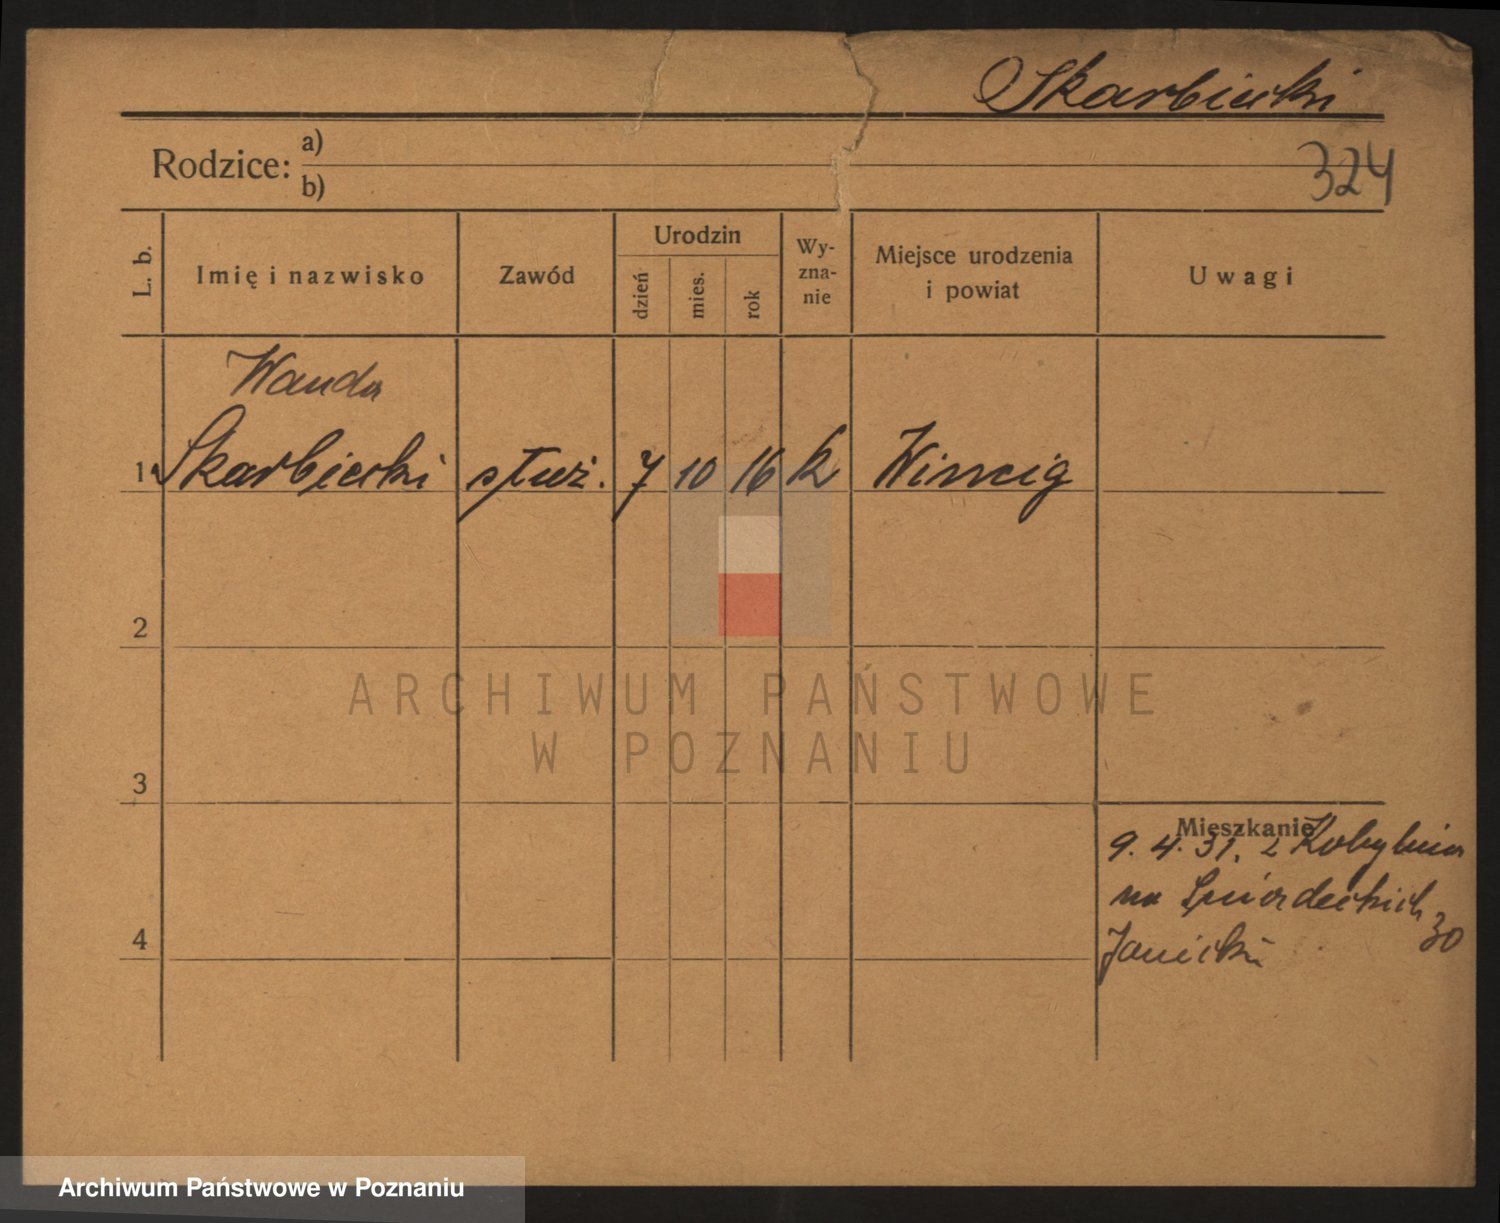 Skarbiecki
324
Rodzice: a)
b)
L. b.
Imię i nazwisko
Zawód
Urodzin
dzień
mies.
rok
Wy-
zna-
nie
Miejsce urodzenia
i powiat
Uwagi
Wanda
1 Skarbiecki służ. 7 10 16 k
2
3
4
Mieszkanie
9. 4. 31. z Kobylnica
na Śniadeckich
30
Janicki
ARCHIWUM PAŃSTWOWE
W POZNANIU
Archiwum Państwowe w Poznaniu